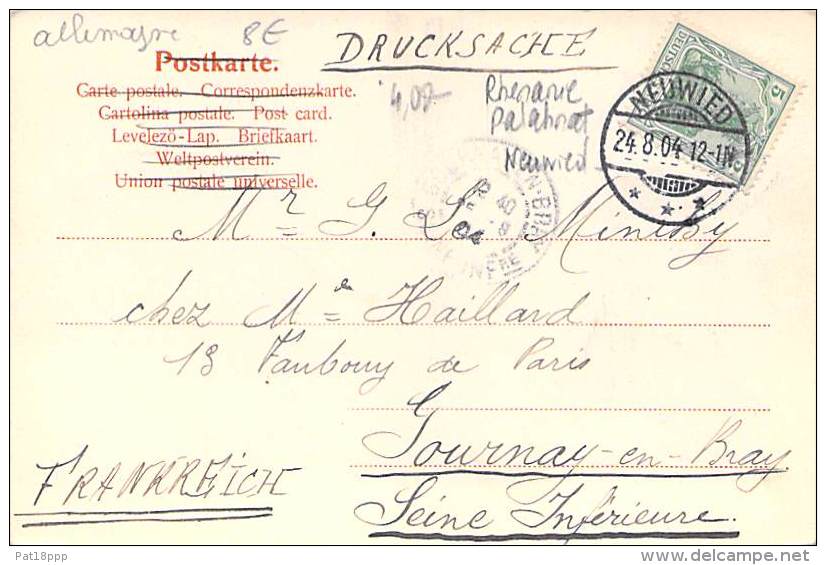 allemagne 8€
DRUCKSACHE
Postkarte.
Carte postale. Correspondenzkarte.
Cartolina postale. Post card.
Levelező-Lap. Briefkaart.
Weltpostverein.
Union postale universelle.
4,00
Rhenanie
palatinat
Neuwied
DEUTSCHES
5
NEUWIED
24.8.04 12-1N.
Mr G. Le
chez Me Haillard
13 Faubourg de Paris
Gournay-en-Bray
Seine Inférieure.
FRANKREICH
Pat18ppp
www.delcampe.net